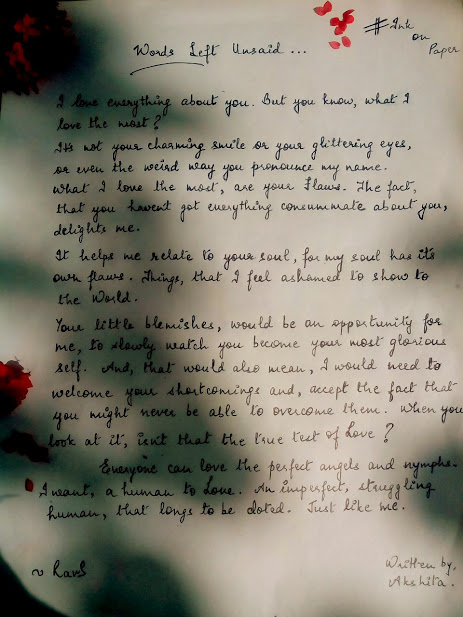 # Ink
on
Paper
Words Left Unsaid ...
I love everything about you. But you know, what I
love the most?
It's not your charming smile or your glittering eyes,
or even the weird way you pronounce my name.
What I love the most, are your Flaws. The fact,
that you haven't got everything consummate about you,
delights me.
It helps me relate to your soul, for my soul has its
own flaws. Things, that I feel ashamed to show to
the World.
Your little blemishes, would be an opportunity for
me, to slowly watch you become your most glorious
self. And, that would also mean, I would need to
welcome your shortcomings and, accept the fact that
you might never be able to overcome them. When you
look at it, isn't that the true test of Love?
Everyone can love the perfect angels and nymphs.
I want, a human to Love. An imperfect, struggling
human, that longs to be doted. Just like me.
Written by,
Akshita.